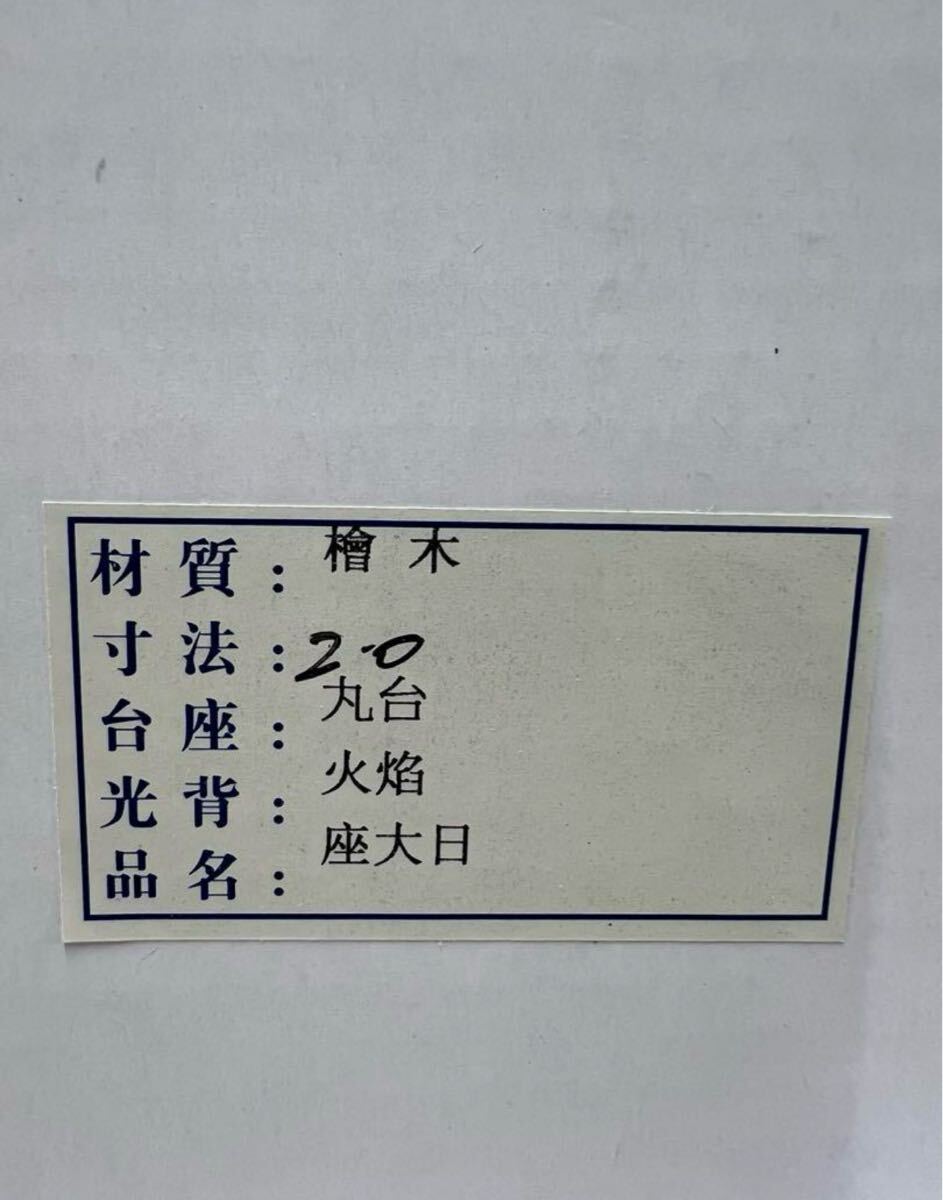 材質：檜木
寸法：2.0
台座：丸台
光背：火焰
品名：座大日